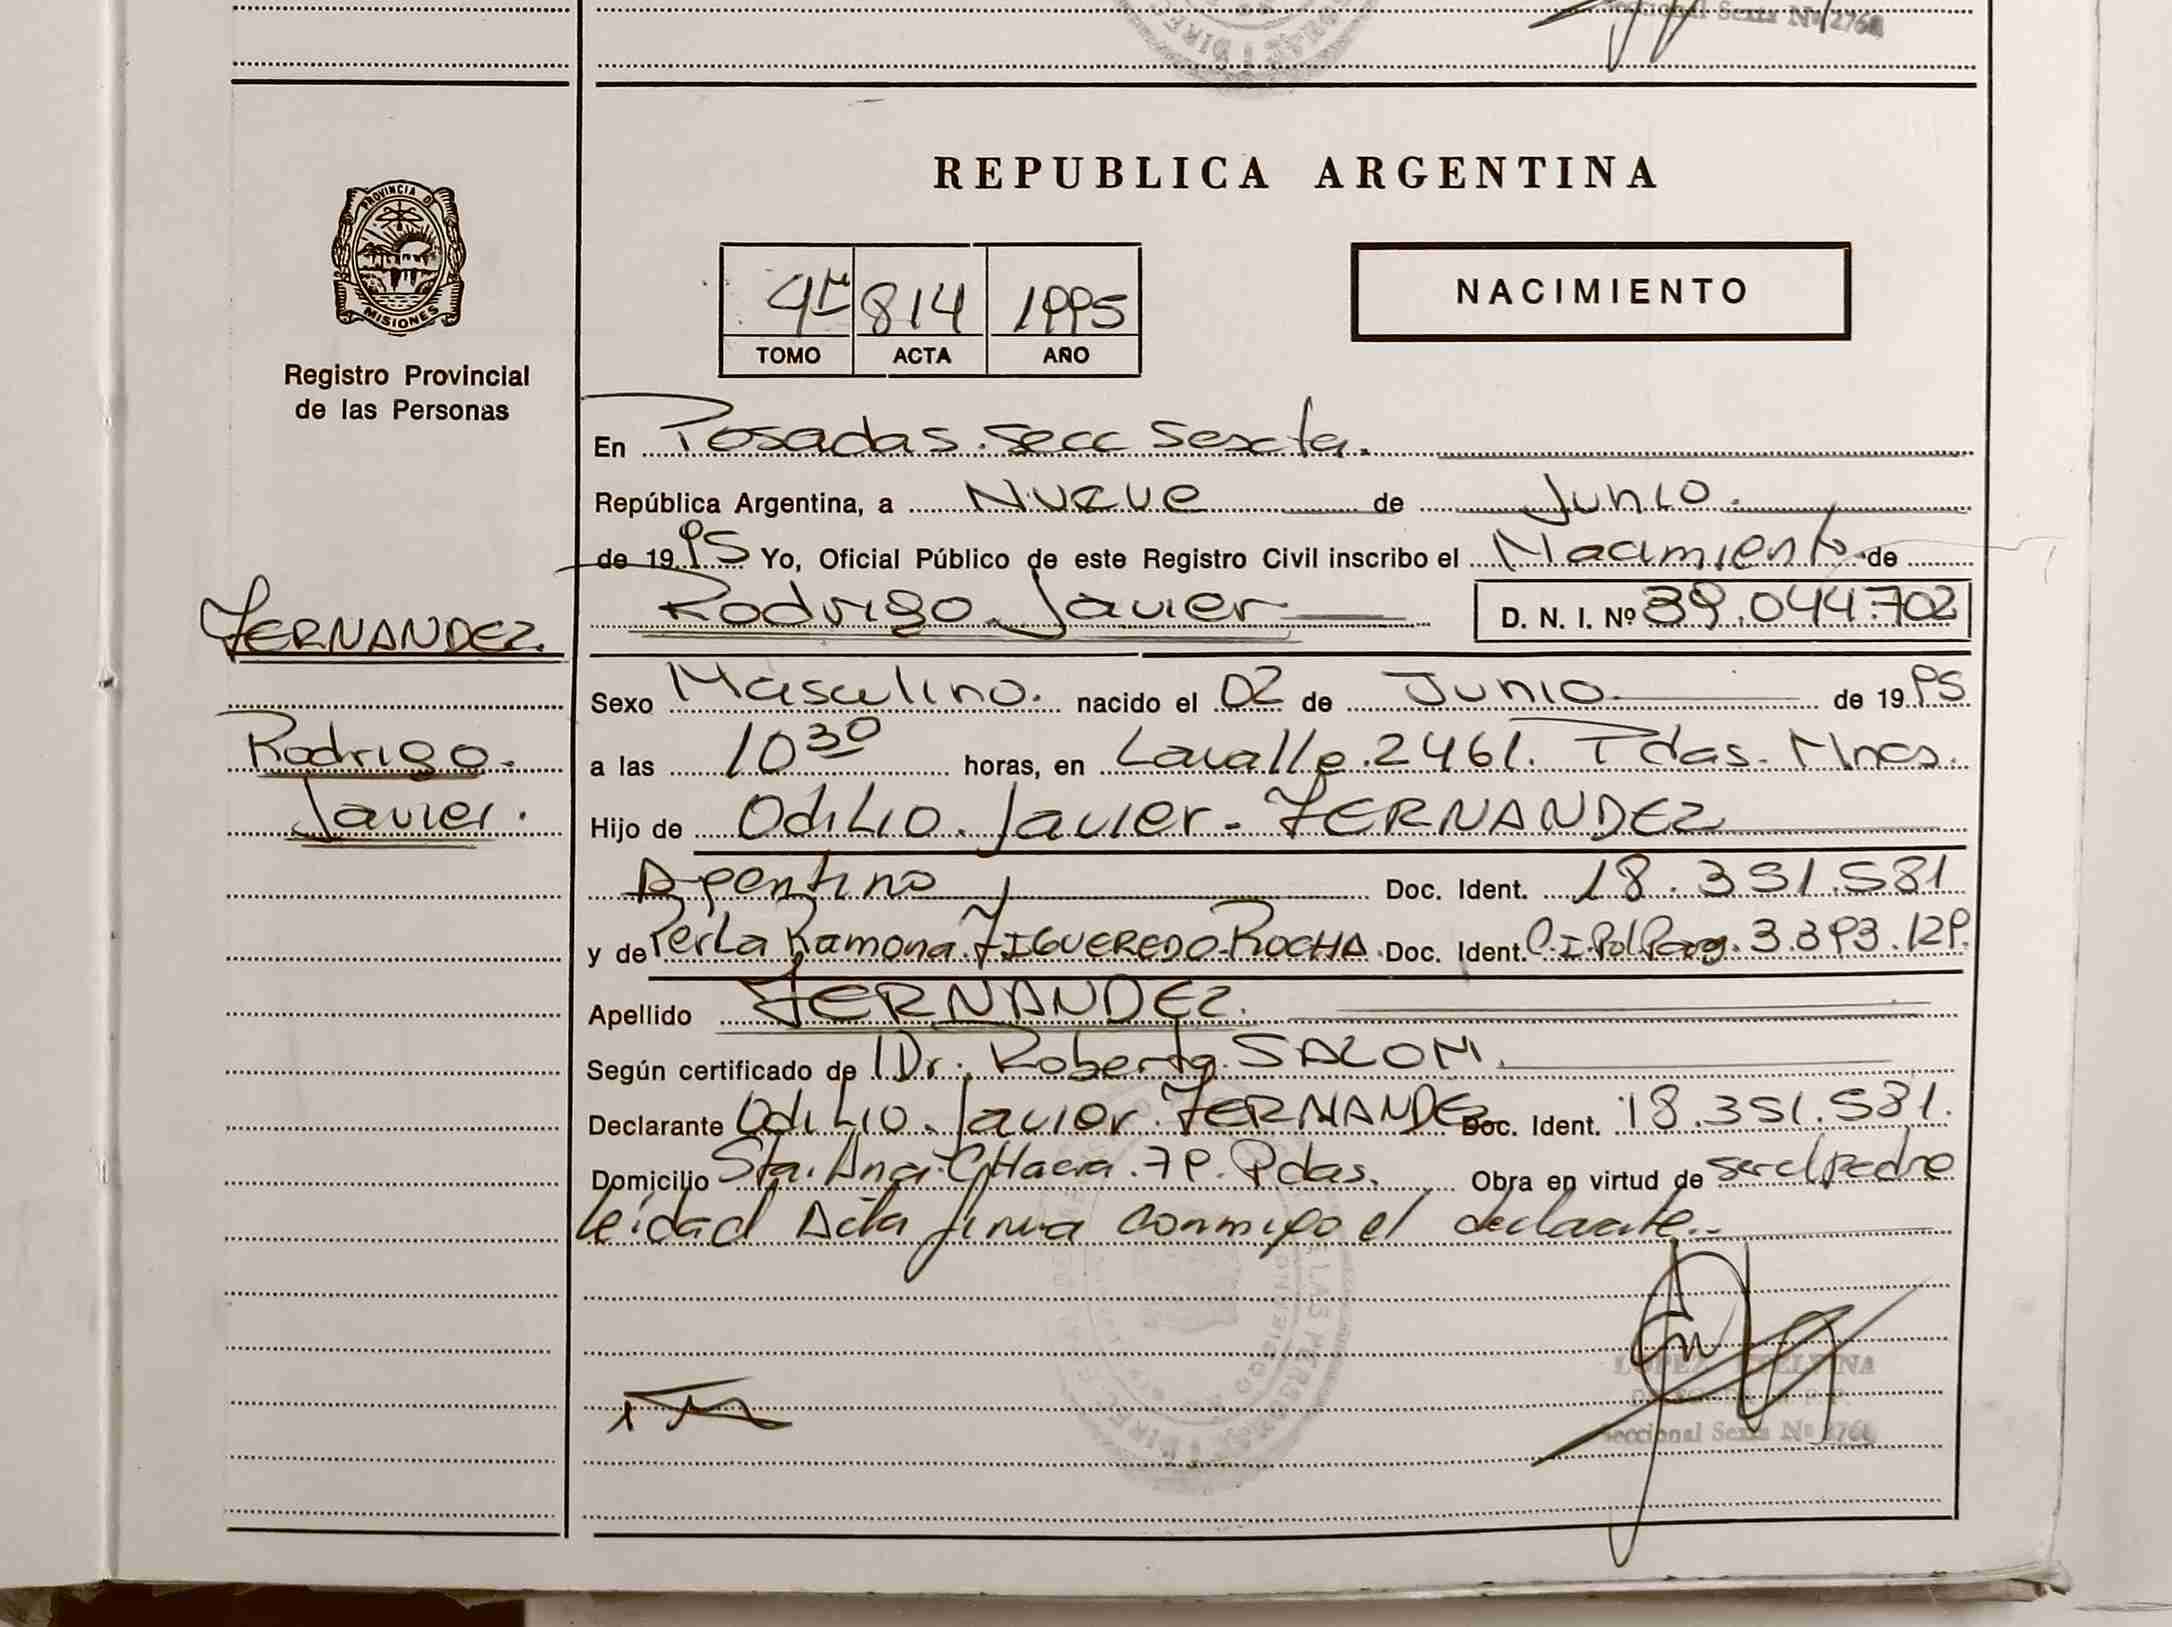 Seccional Sexta Nº 2768
REPUBLICA ARGENTINA
PROVINCIA DE
MISIONES
Registro Provincial
de las Personas
4to 814 1995
TOMO ACTA AÑO
NACIMIENTO
En Posadas. Secc Sexta.
República Argentina, a Nueve de Junio.
de 1995 Yo, Oficial Público de este Registro Civil inscribo el Nacimiento de
Rodrigo Javier D. N. I. Nº 39.044.702
FERNANDEZ.
Rodrigo.
Javier.
Sexo Masculino. nacido el 02 de Junio de 1995
a las 10 30 horas, en Lavalle 2461. Pdas. Mnes.
Hijo de Odilio Javier - FERNANDEZ
Argentino Doc. Ident. 18.351.531
y de Perla Ramona FIGUEREDO-ROCHA Doc. Ident. C.I.Pol.Parag. 3.393.129.
Apellido FERNANDEZ.
Según certificado de Dr. Roberto SALOM.
Declarante Odilio Javier FERNANDEZ Doc. Ident. 18.351.531.
Domicilio Sta. Ana CHacra. 79. Pdas. Obra en virtud de ser el padre
leidad Acta firma conmigo el declarante.
LOPEZ
Seccional Sexta Nº 2768